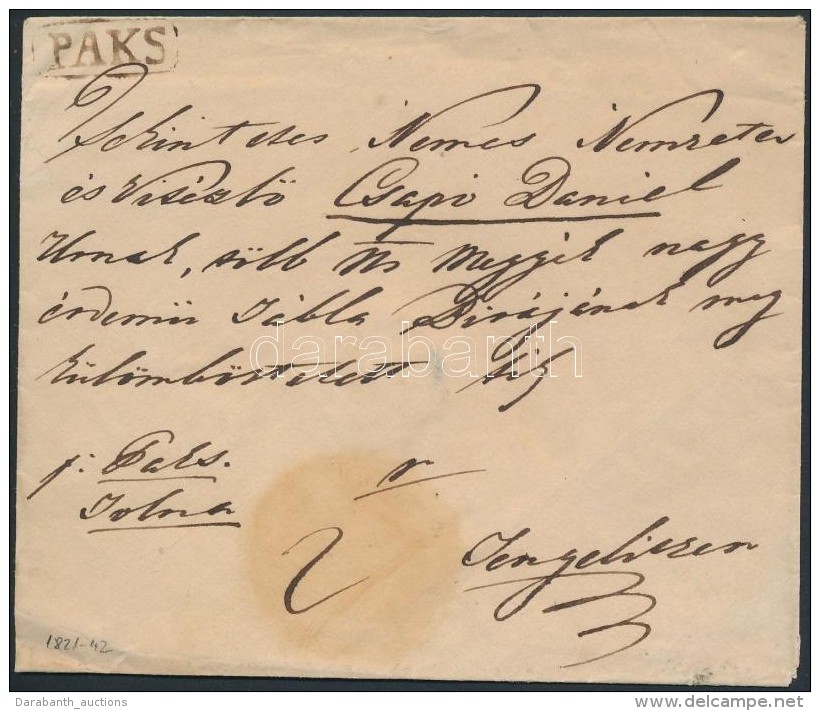 PAKS
Tekintetes Nemes Nemzetes
és Vitézlő Csapó Daniel
Urnak, több Ns Megyék nagy
érdemü Tábla Birájának meg
külömböztetett
darabanth
p: Paks.
Tolna
r
2
Tengeliczen
1821-42
Darabanth_auctions
www.delcampe.net